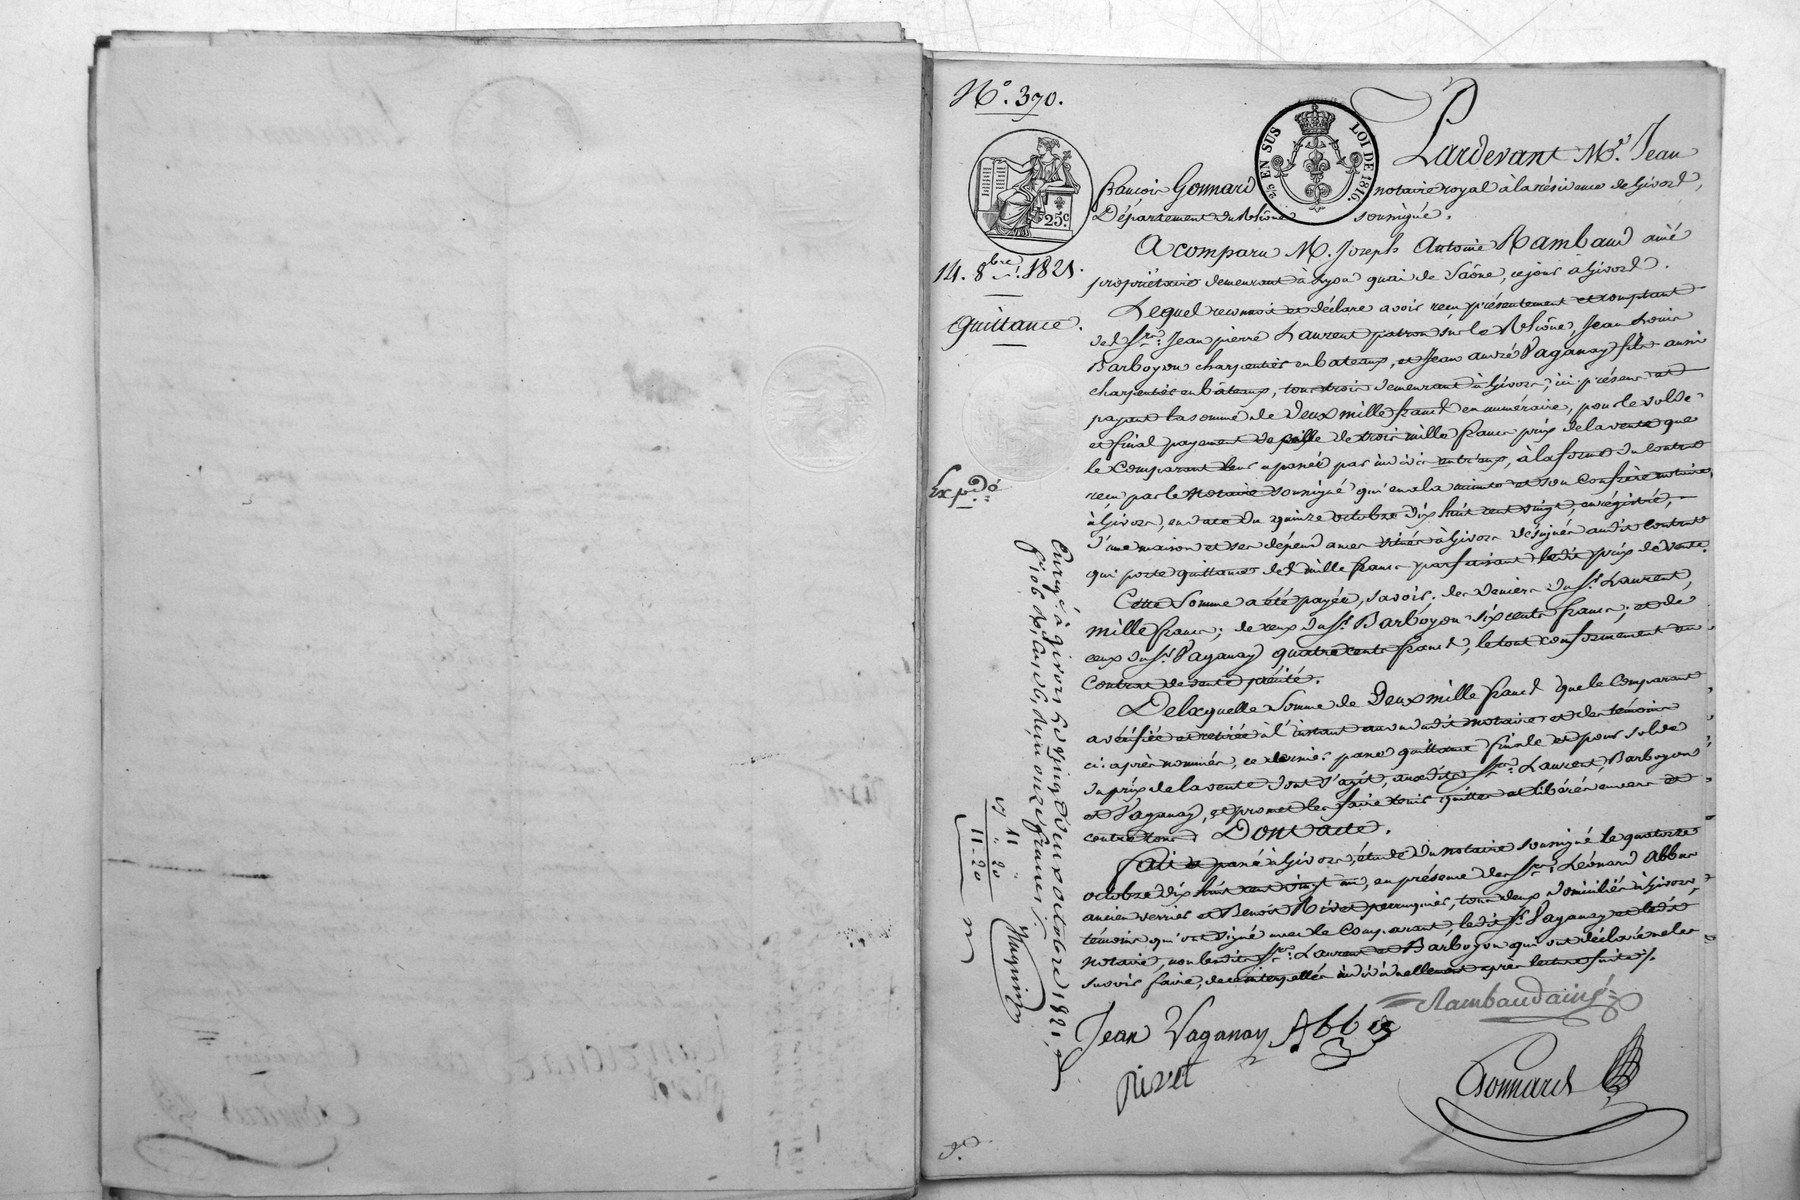 N.° 370.
2/5 EN SUS LOI DE 1816.
25.c
Pardevant M.e Jean
François Gonnard notaire royal à la résidence de Givors,
Département du Rhône soussigné.
14. 8bre 1821.
Quittance.
A comparu M. Joseph Antoine Rambaud ainé
propriétaire demeurant à Lyon quai de Saône, ce jour à Givors.
Lequel reconnoit et déclare avoir reçu présentement et comptant
des Srs. Jean pierre Laurent patron sur le Rhône, Jean Louis
Barboyon charpentier en bateaux, et Jean andré Vaganay fils aussi
charpentier en bateaux, tous trois demeurant à Givors, ici présens et
payant la somme de deux mille francs en numéraire, pour le solde
et final payement de celle de trois mille francs prix de la vente que
le comparant leur a passée par indivis entr'eux, à la forme du contrat
Expédié
reçu par le notaire soussigné qui en a la minute et son confrère notaire
à Givors, en date du quinze octobre dix huit cent vingt, enrégistré,
d'une maison et ses dépendances situés à Givors désignés audit contrat
qui porte quittance des mille francs parfaisant ledit prix de vente.
Cette somme a été payée, savoir: des deniers du Sr. Laurent,
mille francs; de ceux du Sr. Barboyon six cents francs; et de
ceux du Sr. Vaganay quatre cents francs, le tout conformément au
contrat de vente précité.
De laquelle somme de deux mille francs que le comparant
a vérifiée et retirée à l'instant au vu dudit notaire et des témoins
ci-après nommés, ce dernier passe quittance finale et pour solde
du prix de la vente dont s'agit, auxdits Srs. Laurent, Barboyon
et Vaganay, et promet les faire tenir quittes et libérés envers et
contre tous. Dont acte.
Fait et passé à Givors, étude du notaire soussigné le quatorze
octobre dix huit cent vingt un, en présence des Srs. Léonard Abbus
ancien verrier et Benoit Rivet perruquier, tous deux domiciliés à Givors,
témoins qui ont signé avec le comparant, ledit Sr. Vaganay et ledit
notaire, non lesdits Srs. Laurent et Barboyon qui ont déclaré ne les
savoir faire, de ce interpellés individuellement après lecture faite ./.
Enregé à givors le vingt deux octobre 1821,
onze francs
11
" 20
11 - 20
Rambaud ainé
Jean Vaganay
Rivet
Gonnard